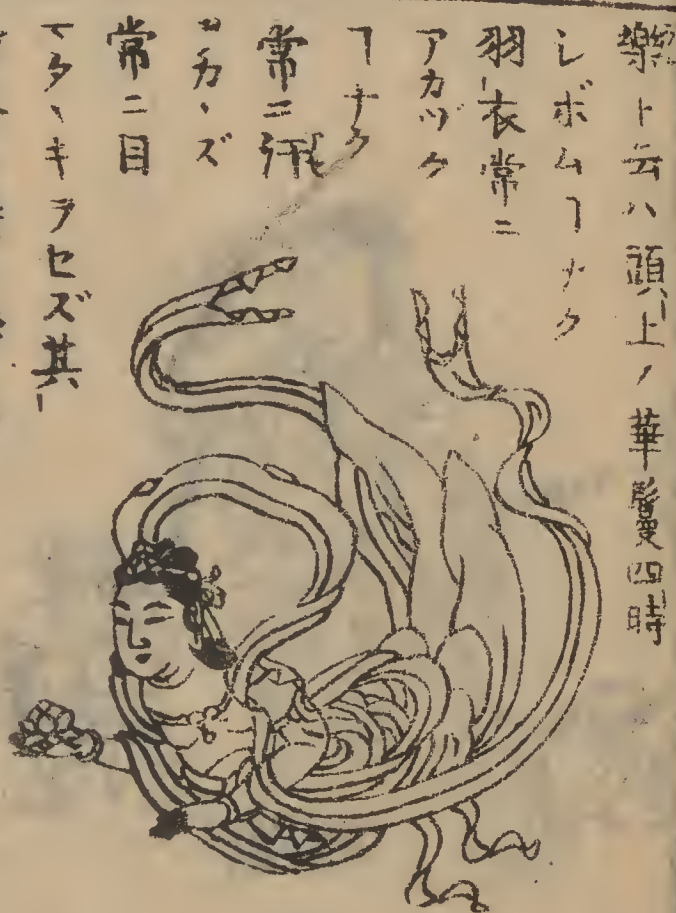 樂ト云ハ頭上ノ華鬘四時
シボムヿナク
羽衣常ニ
アカツク
ヿナク
常ニ汗
カヽズ
常ニ目
マタヽキヲセズ其